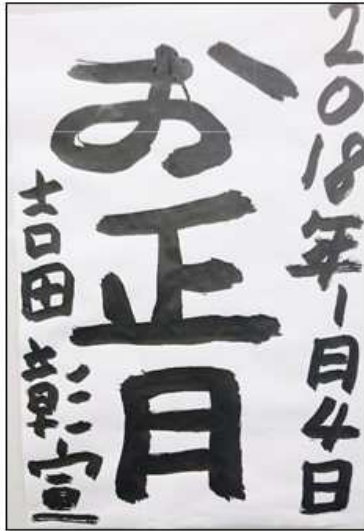 2018年1月4日
お正月
吉田彰宣